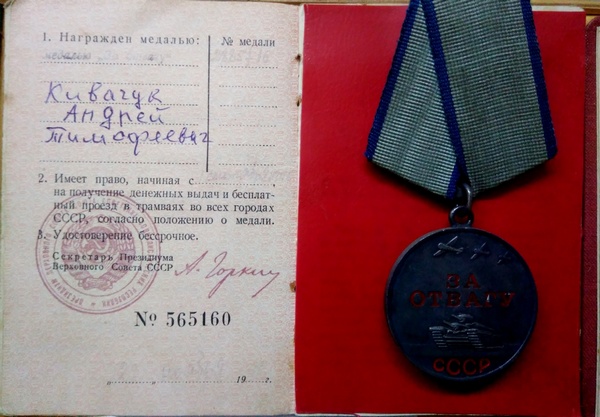 1. Награжден медалью: № медали
Кивачук
Андрей
Тимофеевич
2. Имеет право, начиная с
на получение денежных выдач и бесплат-
ный проезд в трамваях во всех городах
СССР, согласно положению о медали.
3. Удостоверение бессрочное.
Секретарь Президиума
Верховного Совета СССР А. Горкин
№ 565160
„ “ 19 г.
ЗА
ОТВАГУ
СССР